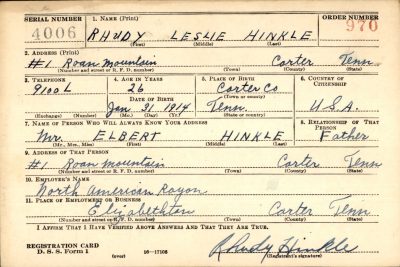 SERIAL NUMBER 1. NAME (Print) ORDER NUMBER
4006 RHUDY LESLIE HINKLE 970
(First) (Middle) (Last)
2. ADDRESS (Print)
#1 Roan Mountain Carter Tenn
(Number and street or R. F. D. number) (Town) (County) (State)
3. TELEPHONE 4. AGE IN YEARS 5. PLACE OF BIRTH 6. COUNTRY OF CITIZENSHIP
9100 L 26 Carter Co
DATE OF BIRTH (Town or county)
Jan 91 1914 Tenn. U.S.A.
(Exchange) (Number) (Mo.) (Day) (Yr.) (State or country)
7. NAME OF PERSON WHO WILL ALWAYS KNOW YOUR ADDRESS 8. RELATIONSHIP OF THAT PERSON
Mr. ELBERT HINKLE Father
(Mr., Mrs., Miss) (First) (Middle) (Last)
9. ADDRESS OF THAT PERSON
#1 Roan Mountain Carter Tenn
(Number and street or R. F. D. number) (Town) (County) (State)
10. EMPLOYER'S NAME
North American Rayon
11. PLACE OF EMPLOYMENT OR BUSINESS
Elizabethton Carter Tenn
(Number and street or R. F. D. number) (Town) (County) (State)
I AFFIRM THAT I HAVE VERIFIED ABOVE ANSWERS AND THAT THEY ARE TRUE.
REGISTRATION CARD
D. S. S. Form 1 16—17105 Rhudy Hinkle
(over) (Registrant's signature)